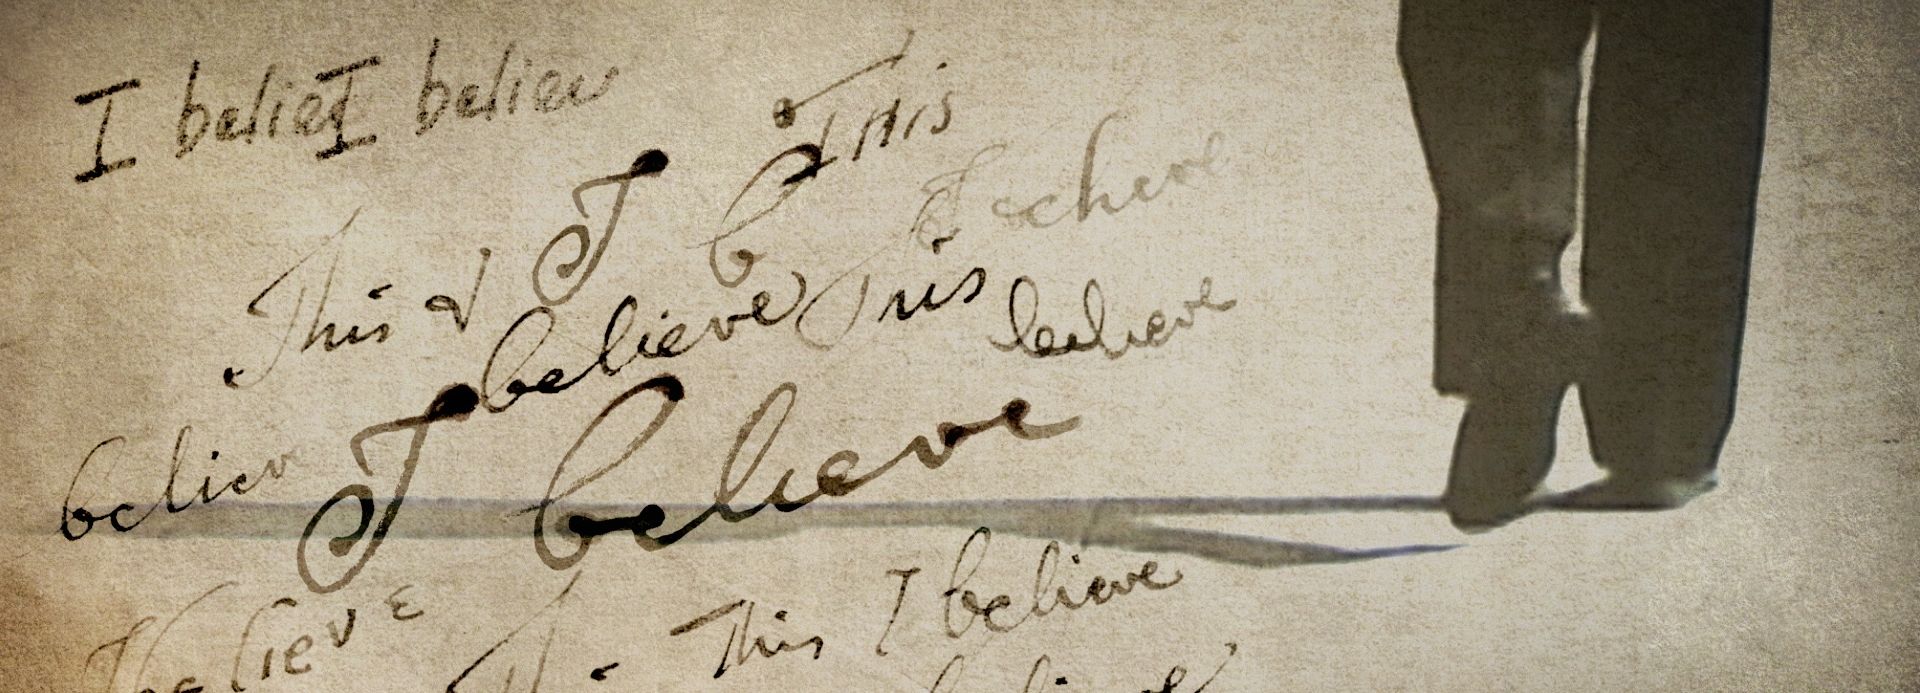 I believ I believ
This
I b
believe
This I
believe This
believe
believ
I believe
believe
This I believe
believe